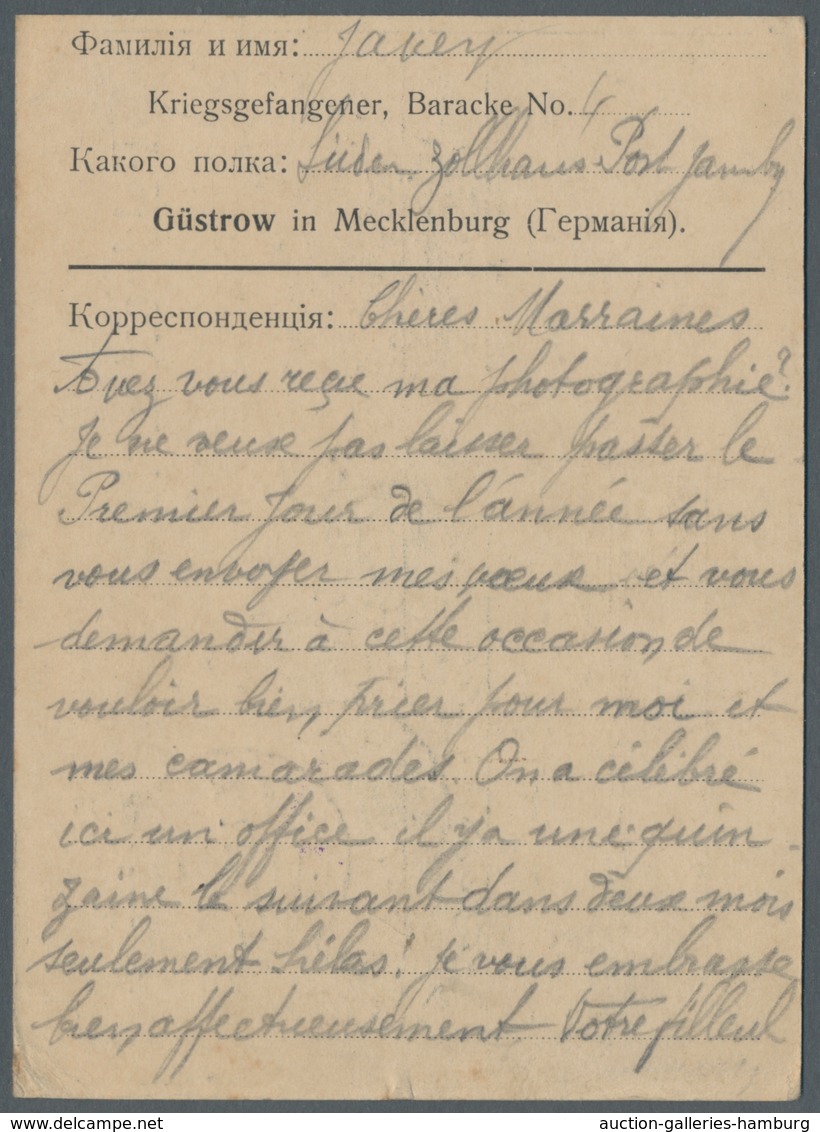 Фамилія и имя: Javey
Kriegsgefangener, Baracke No. 4
Какого полка: Süder Zollhaus Post
Güstrow in Mecklenburg (Германія).
Корреспонденція: Chères Marraines
Avez vous reçue ma photographie?
Je ne veux pas laisser passer le
Premier Jour de l'année sans
vous envoyer mes voeux et vous
demander à cette occasion, de
vouloir bien, prier pour moi et
mes camarades. On a célébré
ici un office il y a une quin-
zaine le suivant dans deux mois
seulement hélas! je vous embrasse
bien affectueusement Votre filleul
auction-galleries-hamburg